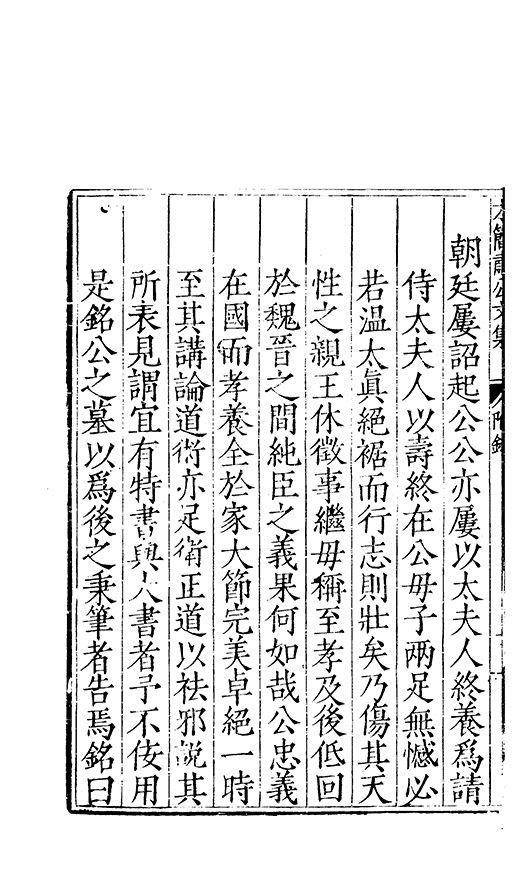 朝廷屢詔起公公亦屢以太夫人終養爲請
侍太夫人以壽終在公毋子兩足無憾必
若温太眞絕裾而行志則壯矣乃傷其天
性之親王休徵事繼毋稱至孝及後低回
於魏晉之間純臣之義果何如哉公忠義
在國而孝養全於家大節完美卓絕一時
至其講論道術亦足衛正道以祛邪說其
所表見謂宜有特書與大書者予不佞用
是銘公之墓以爲後之秉筆者告焉銘曰